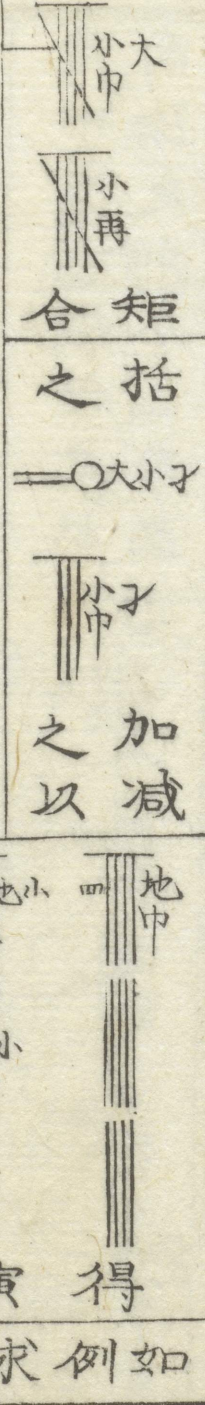 大
小巾
小再
矩合
括之
大小子
子
小巾
加減
之以
地巾
四
得
小地
小
寅
如例求